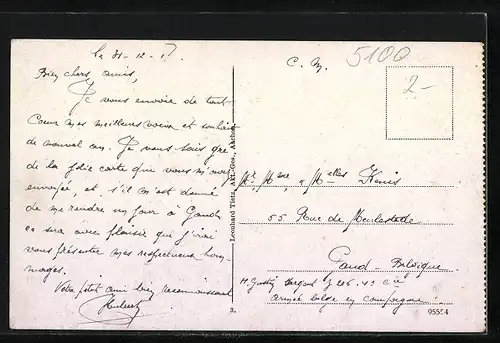 le 31-12-1
Bien chers amis,
Je vous envoie de tout
Coeur mes meilleurs voeux et souhaits
de nouvel an. Je vous sais gré
de la jolie carte que vous m'avez
envoyée, et s'il m'est donné
de me rendre un jour à Gand
ce sera avec plaisir que j'irai
vous présenter mes respectueux hom-
mages.
Votre petit ami bien reconnaissant
Hubert
Leonhard Tietz, Akt.-Ges., Aachen.
3.
C. M.
5100
2-
Mr, Mme, & Melles Kenis
55 Rue de
Gand Belgique
Sergent
armée belge en campagne
95554